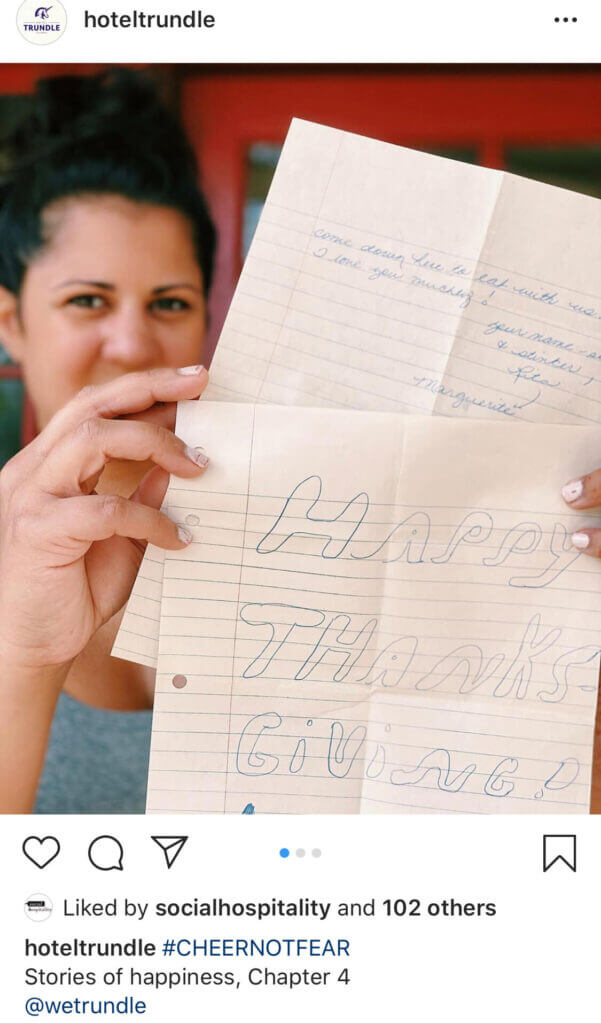 TRUNDLE
hoteltrundle
come down here to eat with us.
I love you muchly!
your name-
& stinker,
Rita
Marguerite
HAPPY
THANKS-
GiViNG!
Liked by socialhospitality and 102 others
hoteltrundle #CHEERNOTFEAR
Stories of happiness, Chapter 4
@wetrundle